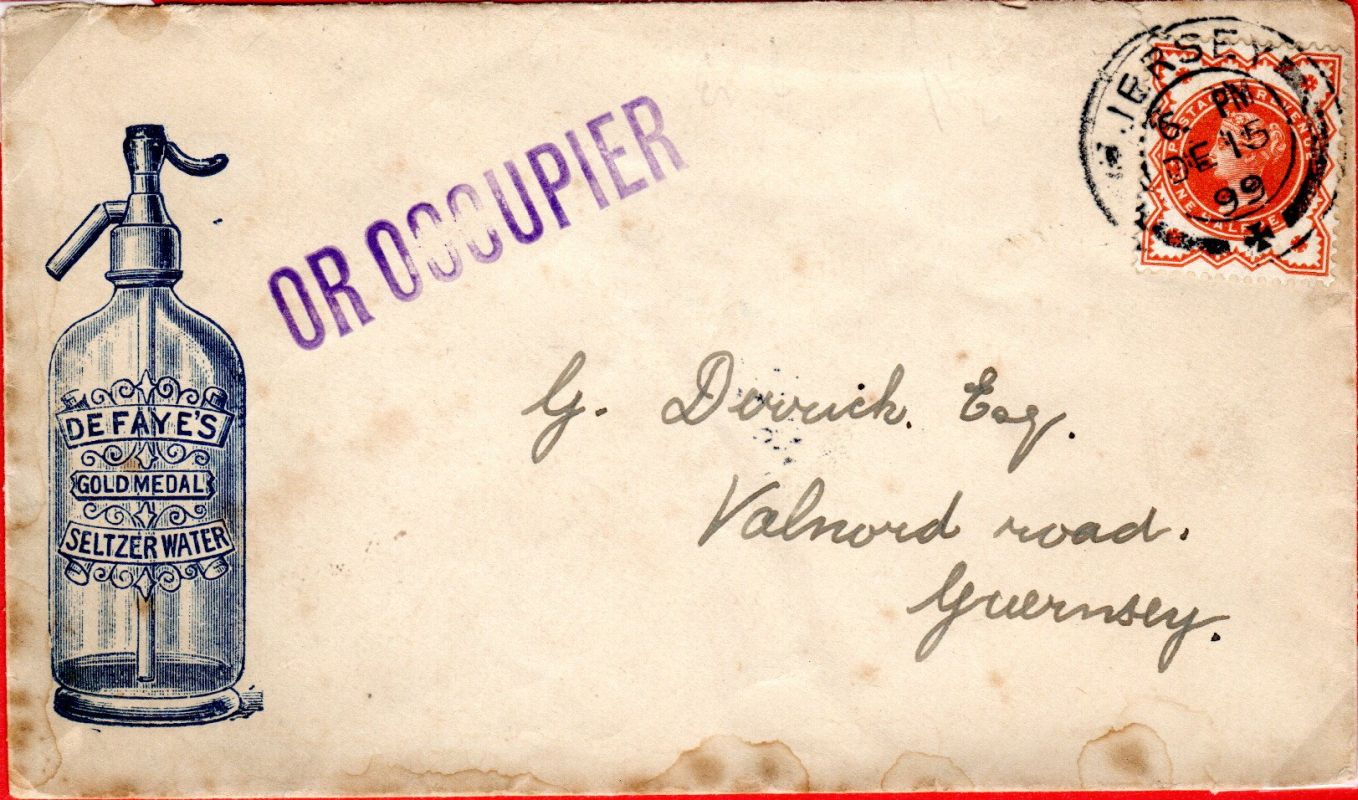 DE FAYE'S
GOLD MEDAL
SELTZER WATER
OR OCCUPIER
JERSEY
6 PM
DE 15
99
POSTAGE REVENUE
G. Derrick. Esq.
Valnord road.
Guernsey.